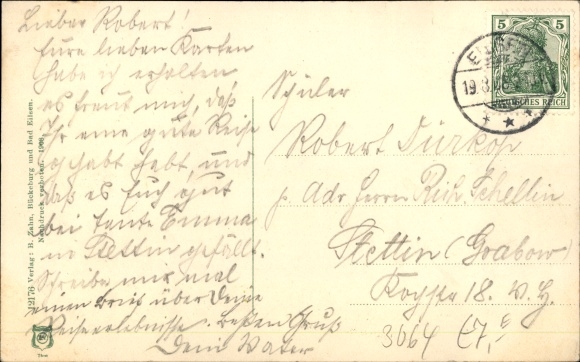 Lieber Robert!
Eure lieben Karten
habe ich erhalten
es freut mich, daß
Ihr eine gute Reise
gehabt habt und
daß es Euch gut
bei Tante Emma
in Stettin gefällt.
Schreibe mir mal
einen Brief über Deine
Reiseerlebnisse. besten Gruß
Dein Vater
12176 Verlag: B. Zahn, Bückeburg und Bad Eilsen.
Nachdruck verboten.
5 5
DEUTSCHES REICH
19.8.
Schüler
Robert Dürkop
p. Adr Herrn Rich. Schellin
Stettin (Grabow)
18. v. H.
3064 £7,€